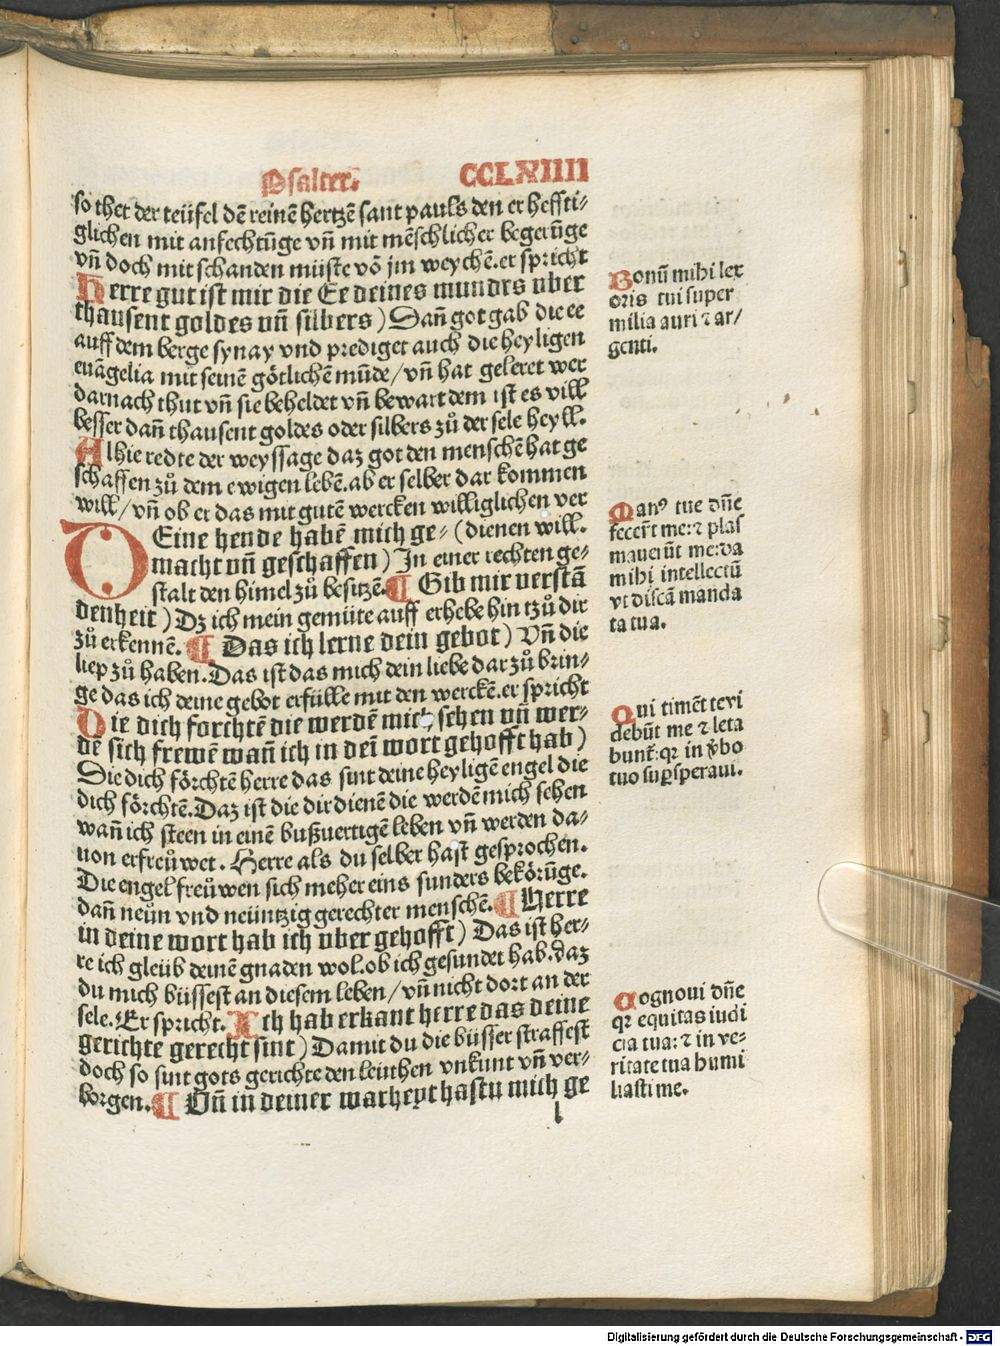 Psalter. CCLXIIII
so thet der teüfel dē reinē hertzē sant pauls den er heffti-
glichen mit anfechtūge vñ mit mēschlicher begerūge
vñ doch mit schanden müste vō jm weychē. er spricht
Herre gut ist mir die Ee deines mundes uber
thausent goldes uñ silbers) Dañ got gab die ee
auff dem berge synay vnd prediget auch die heyligen
euāgelia mit seinē götlichē mūde/ vñ hat geleret wer
darnach thut vñ sie beheldet vñ bewart dem ist es vill
besser dañ thausent goldes oder silbers zů der sele heyll.
Alhie redte der weyssage daz got den menschē hat ge
schaffen zů dem ewigen lebē. ab er selber dar kommen
will/ vñ ob er das mit gutē wercken williglichen ver
DEine hende habē mich ge- (dienen will.
macht uñ geschaffen) In einer rechten ge-
stalt den himel zů besitzē. ¶ Gib mir uerstā
denheit) Dz ich mein gemüte auff erhebe hin tzů dir
zů erkennē. ¶ Das ich lerne dein gebot) Vñ die
liep zů haben. Das ist das mich dein liebe dar zů brin-
ge das ich deine gebot erfülle mit den werckē. er spricht
Die dich forchtē die werdē mich sehen uñ wer-
dē sich frewē wañ ich in dei wort gehofft hab)
Die dich förchtē herre das sint deine heyligē engel die
dich förchtē. Daz ist die dir dienē die werdē mich sehen
wañ ich steen in einē bußuertigē leben vñ werden da-
uon erfreůwet. Herre als du selber hast gesprochen.
Die engel freůwen sich meher eins sunders bekörūge.
dañ neün vnd neüntzig gerechter menschē. ¶ Herre
in deine wort hab ich uber gehofft) Das ist her-
re ich gleüb deinē gnaden wol. ob ich gesundet hab. daz
du mich büssest an diesem leben/ vñ nicht dort an der
sele. Er spricht. Ich hab erkant herre das deine
gerichte gerecht sint) Damit du die büsser straffest
doch so sint gots gerichte den leuthen vnkunt vñ ver-
borgen. ¶ Uñ in deiner warheyt hastu mich ge
l
Bonū mihi lex
oris tui super
milia auri ⁊ ar/
genti.
Manꝰ tue dñe
fecerūt me: ⁊ plas
mauerūt me: da
mihi intellectū
vt discā manda
ta tua.
Qui timēt te vi
debūt me ⁊ leta
bunt: qꝛ in v̄bo
tuo suꝑsperaui.
Cognoui dñe
qꝛ equitas iudi
cia tua: ⁊ in ve-
ritate tua humi
liasti me.
Digitalisierung gefördert durch die Deutsche Forschungsgemeinschaft - DFG